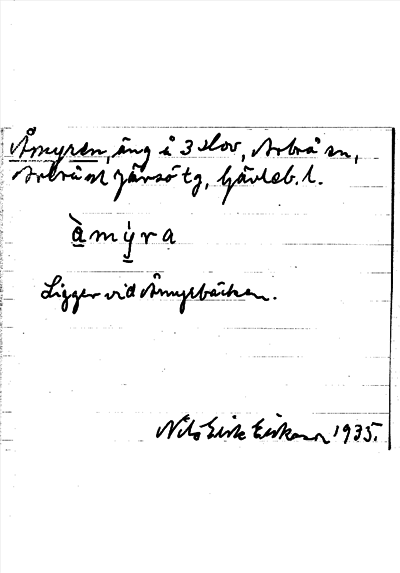 Åmyren, äng å 3 Flov, Arbrå sn,
Arbrå och Järvsö tg, Gävleb. l.
àmýra
Ligger vid Åmyrbäcken.
Nils Erik Eriksson 1935.